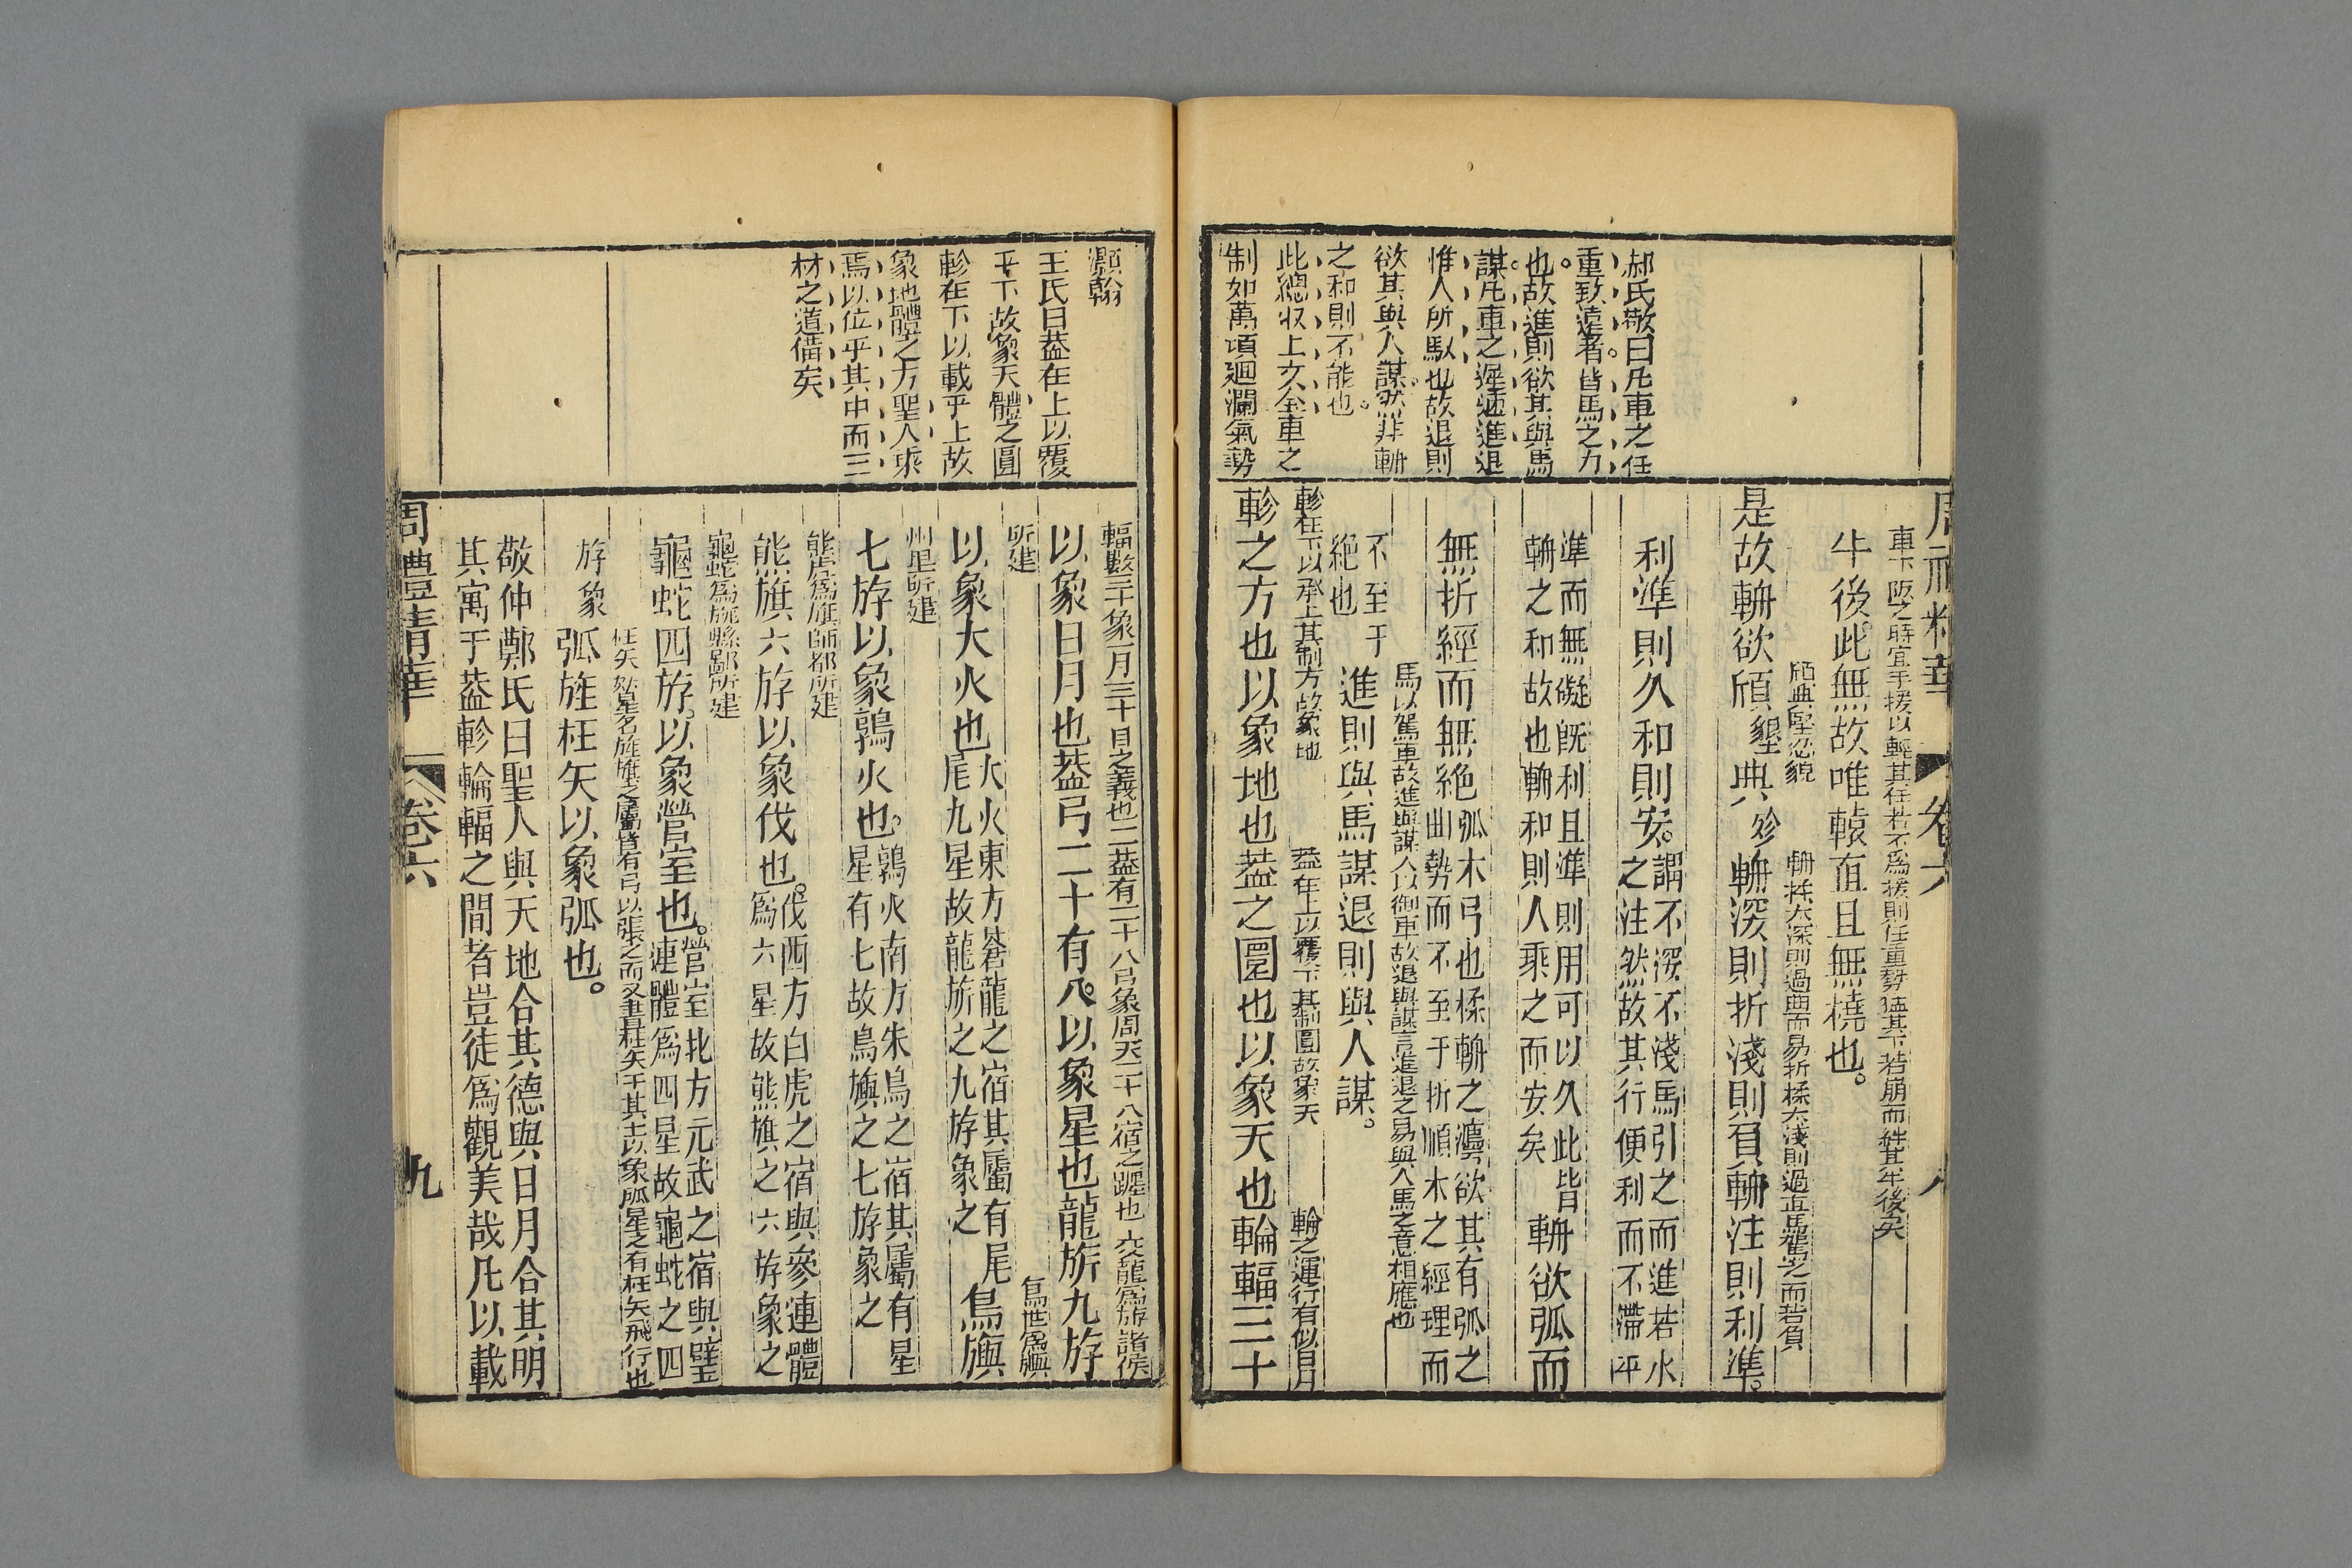 周禮精華
卷六
八
郝氏敬曰凡車之任
重致遠者皆馬之力
也故進則欲其與馬
謀凡車之遲速進退
惟人所馭也故退則
欲其與人謀然非輈
之和則不能也
此總収上文全車之
制如萬頃迴瀾氣勢
車下阪之時宜手援以輕其任若不爲援則任重勢猛其下若崩而絆其牛後矣
牛後此無故唯轅直且無橈也
頎典堅忍貌
輈揉太深則過曲而易折揉太淺則過直馬駕之而若負
是故輈欲頎墾典殄輈深則折淺則負輈注則利準
利準則久和則安謂不深不淺馬引之而進若水
之注然故其行便利而不滯平
準而無礙旣利且準則用可以久此皆
輈之和故也輈和則人乘之而安矣輈欲弧而
無折經而無絶弧木弓也揉輈之濃欲其有弧之
曲勢而不至于折順木之經理而
馬以駕車故進與謀人以御車故退與謀言進退之易與人馬之意相應也
不至于
絶也進則與馬謀退則與人謀
軫在下以承上其制方故象地
蓋在上以覆下其制圓故象天
輪之運行有似日月
軫之方也以象地也蓋之圜也以象天也輪輻三十
灝翰
王氏曰蓋在上以覆
乎下故象天體之圓
軫在下以載乎上故
象地體之方聖人乘
焉以位乎其中而三
材之道備矣
輻數三十象一月三十日之義也二蓋有二十八弓象周天二十八宿之躔也
交龍爲旂諸侯
以象日月也蓋弓二十有八以象星也龍旂九斿
所建
鳥隼爲旟
以象大火也大火東方蒼龍之宿其屬有尾
尾九星故龍旂之九斿象之鳥旟
州里所建
七斿以象鶉火也鶉火南方朱鳥之宿其屬有星
星有七故鳥旟之七斿象之
熊虎爲旗師都所建
熊旗六斿以象伐也伐西方白虎之宿與參連體
爲六星故熊旗之六斿象之
龜蛇爲旐縣鄙所建
龜蛇四斿以象營室也營室北方元武之宿與璧
連體爲四星故龜蛇之四
枉矢妖星名旌旗之屬皆有弓以張之而又畫枉矢于其上以象弧星之有枉矢飛行也
斿象
弧旌枉矢以象弧也
敬仲鄭氏曰聖人與天地合其德與日月合其明
其寓于蓋軫輪輻之間者豈徒爲觀美哉凡以載
周禮精華
卷六
九